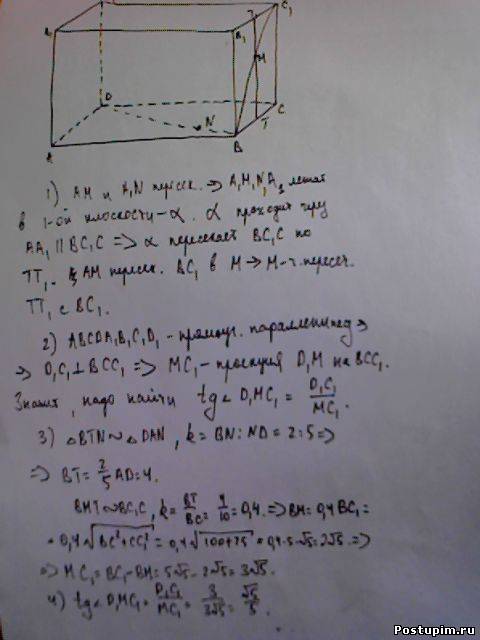 C₁
A₁ B₁ T₁
M
D C
N T
A B
1) AM и A₁N перес. ⇒ A₁, M, N, A лежат
в 1-ой плоскости - α. α проходит через
AA₁ ∥ BC₁C ⇒ α пересекает BC₁C по
TT₁. AM пересек. BC₁ в M ⇒ M - т. пересеч.
TT₁ с BC₁.
2) ABCDA₁B₁C₁D₁ - прямоуг. параллепипед ⇒
⇒ D₁C₁ ⊥ BCC₁ ⇒ MC₁ - проекция D₁M на BCC₁.
Значит, надо найти tg∠D₁MC₁ = D₁C₁/MC₁.
3) △BTN ∾ △DAN, k = BN : ND = 2:5 ⇒
⇒ BT = 2/5 AD = 4.
BMT ∾ BC₁C, k = BT/BC = 4/10 = 0,4. ⇒ BM = 0,4 BC₁ =
= 0,4 √(BC² + CC₁²) = 0,4 √(100+25) = 0,4·5·√5 = 2√5. ⇒
⇒ MC₁ = BC₁ - BM = 5√5 - 2√5 = 3√5.
4) tg∠D₁MC₁ = D₁C₁/MC₁ = 3/3√5 = √5/5.
Postupim.ru